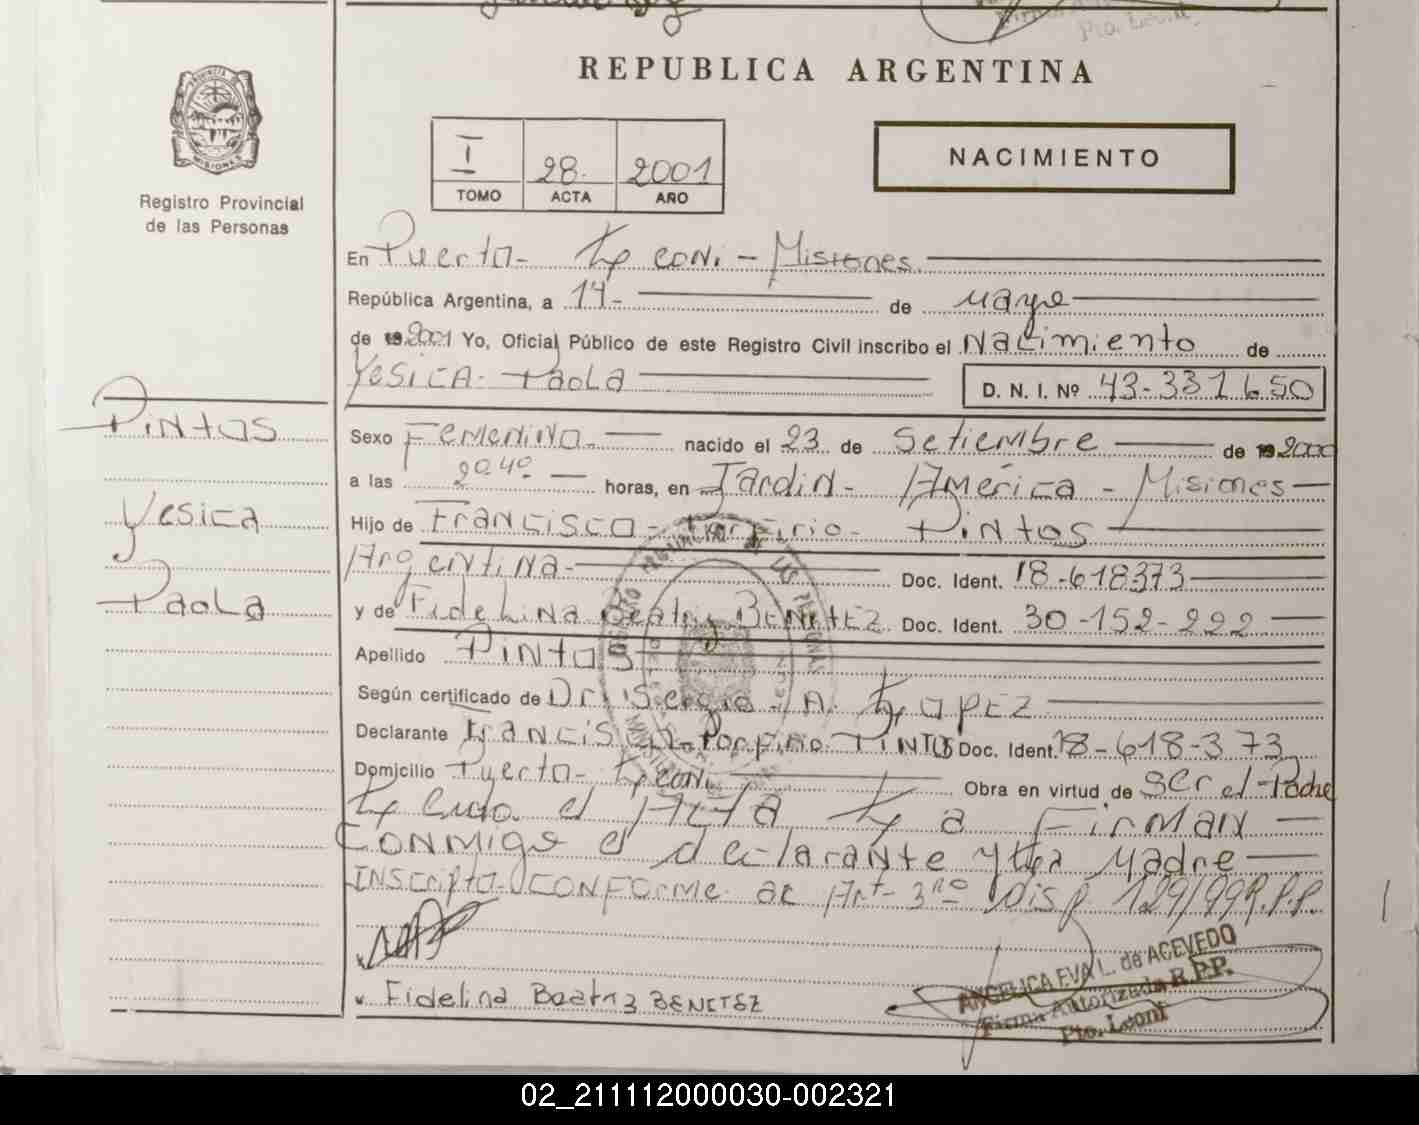 Pto. Leoni
REPUBLICA ARGENTINA
PROVINCIA DE
MISIONES
Registro Provincial
de las Personas
I 28. 2001
TOMO ACTA AÑO
NACIMIENTO
En Puerto- Leoni - Misiones.
República Argentina, a 14- de mayo
de 192001 Yo, Oficial Público de este Registro Civil inscribo el Nacimiento de
Yesica- Paola D. N. I. Nº 43-331650
PINtOS
Yesica
Paola
Sexo Femenino nacido el 23 de Setiembre de 192000
a las 20.40 horas, en Jardin- America - Misiones
Hijo de Francisco- Porfirio- PiNtos
Argentina- Doc. Ident. 18-618373
y de Fidelina Beatriz BENITEZ Doc. Ident. 30-152-222
Apellido PiNtOS
Según certificado de Dr. Sergio - A. LOPEZ
Declarante FranCisco Porfirio PINTOS Doc. Ident. 18-618-373
Domicilio Puerto- Leoni Obra en virtud de ser el Padre
Leida el ACTA La FirMAN
CONMigo el declarante y la Madre
INScripto CONForme al Art 3ro Disp 129/99 R.P.P.
Fidelina Beatriz BENITEZ
ANGELICA EVA L. de ACEVEDO
Firma Autorizada R.P.P.
Pto. Leoni
02_211112000030-002321